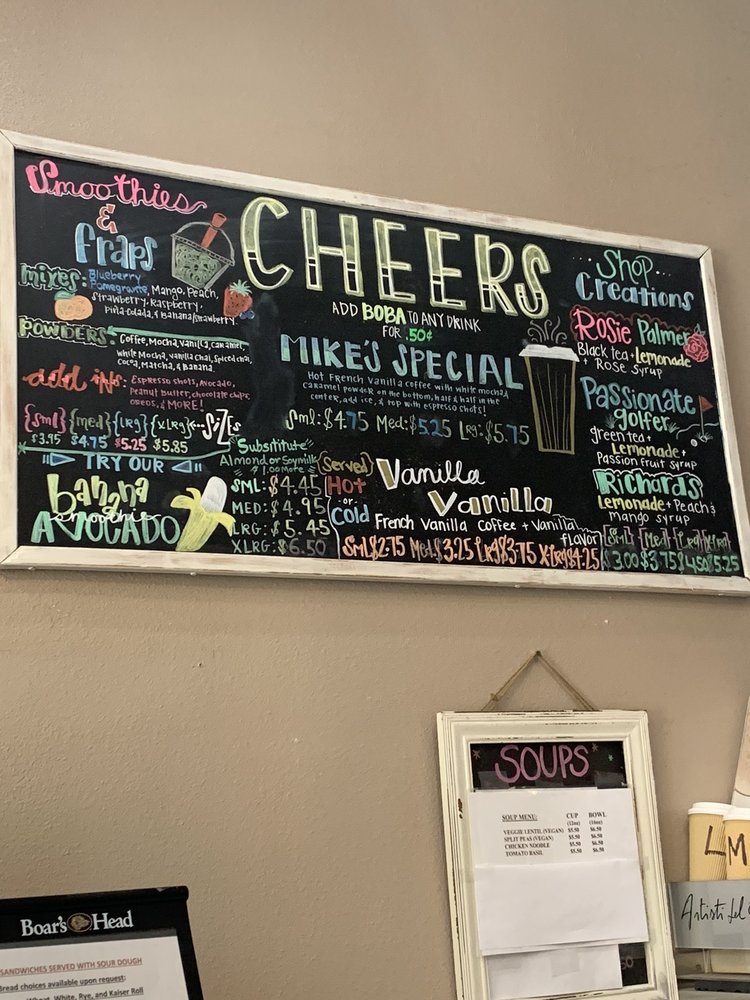 Smoothies
&
Fraps
Mixes: Blueberry,
Pomegranate, Mango, Peach,
Strawberry, Raspberry,
Piña Colada, & Banana/Strawberry.
POWDERS: Coffee, Mocha, Vanilla, Caramel,
White Mocha, Vanilla Chai, Spiced Chai,
Cocoa, Matcha, & Banana.
add ins: Espresso shots, Avocado,
Peanut Butter, chocolate chips,
oreos, & MORE!
{Sml} {med} {lrg} {xlrg} ← SIZES
$3.95 $4.75 $5.25 $5.85
TRY OUR
banana
smoothie
AVOCADO
CHEERS
ADD BOBA TO ANY DRINK
FOR .50¢
MIKE'S SPECIAL
Hot French Vanilla coffee with white mocha &
caramel powder on the bottom, half & half in the
center, add ice, & top with espresso shots!
Sml: $4.75 Med: $5.25 Lrg: $5.75
"Subsititute"
Almond or Soymilk
$1.00 More
SML: $4.45
MED: $4.95
LRG: $5.45
XLRG: $6.50
{Served}
Hot
-or-
Cold
Vanilla
Vanilla
French Vanilla Coffee + Vanilla
flavor
Sml $2.75 Med $3.25 Lrg $3.75 X-Lrg $4.25
Shop
Creations
Rosie Palmer
Black tea + Lemonade
+ Rose Syrup
Passionate
golfer
green tea +
Lemonade +
Passion fruit syrup
Richards
Lemonade + Peach &
mango syrup
{Sml} {Med} {Lrg} {Xlrg}
$3.00 $3.75 $4.50 $5.25
SOUPS
SOUP MENU: CUP BOWL
(12oz) (16oz)
VEGGIE LENTIL (VEGAN) $5.50 $6.50
SPLIT PEAS (VEGAN) $5.50 $6.50
CHICKEN NOODLE $5.50 $6.50
TOMATO BASIL $5.50 $6.50
L M
Artisti del
Boar's Head
SANDWICHES SERVED WITH SOUR DOUGH
Bread choices available upon request:
Wheat, White, Rye, and Kaiser Roll